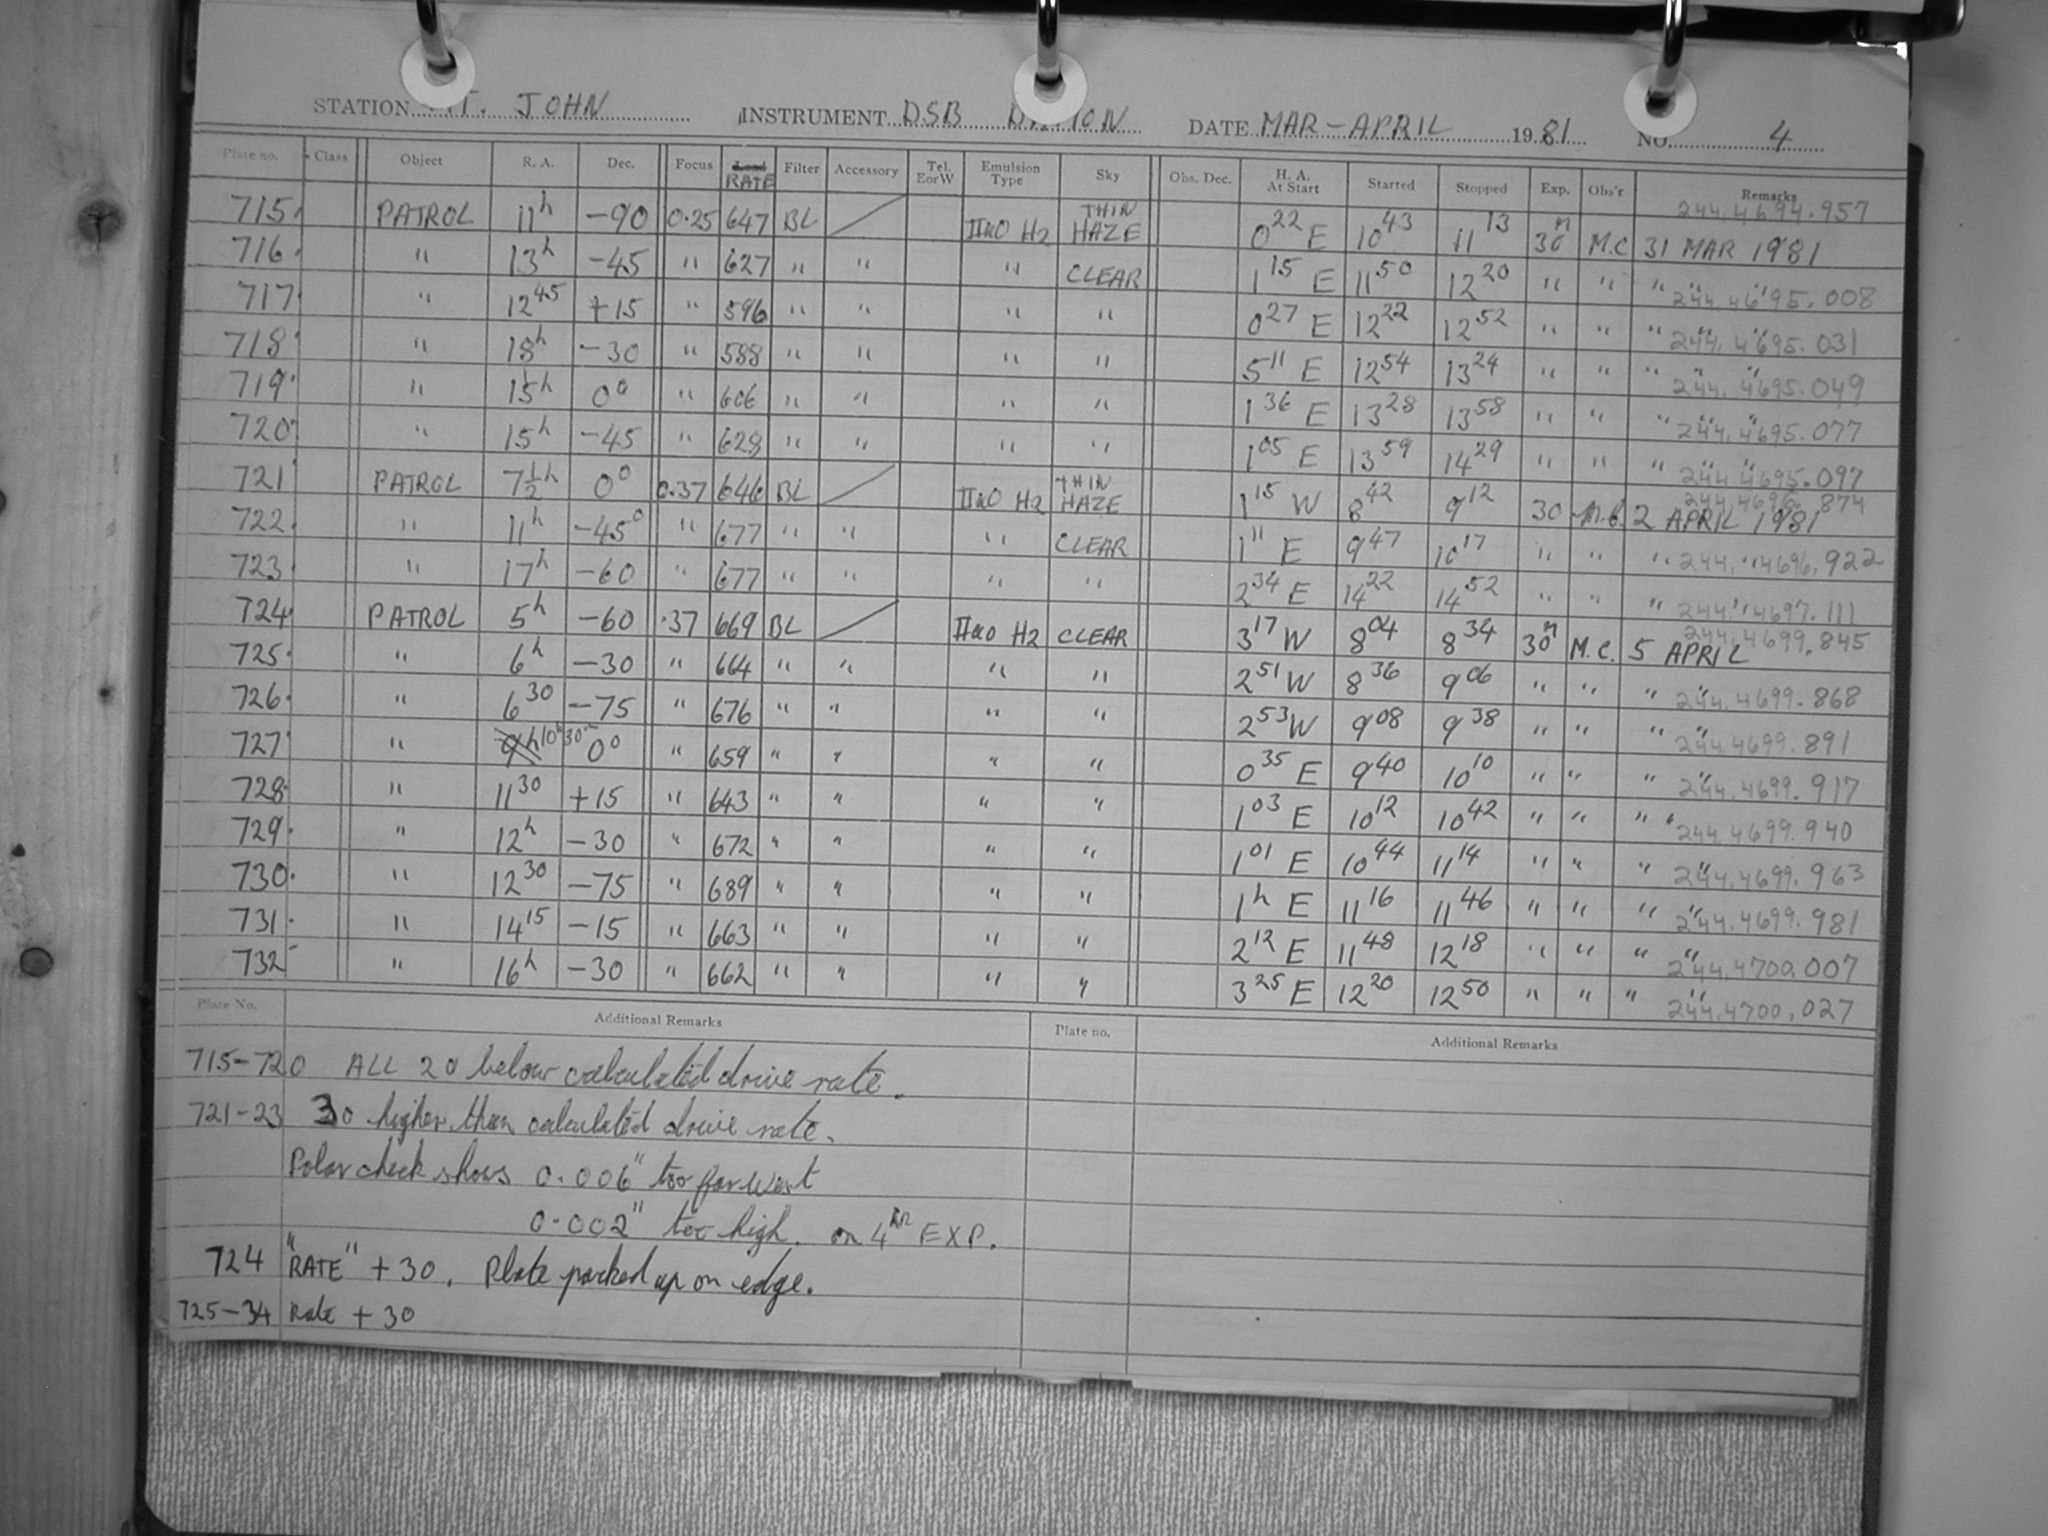 STATION MT. JOHN INSTRUMENT DSB DAMON DATE MAR-APRIL 1981 NO. 4
Plate no. Class Object R. A. Dec. Focus Load RATE Filter Accessory Tel. EorW Emulsion Type Sky Obs. Dec. H. A. At Start Started Stopped Exp. Obs'r Remarks
715 PATROL 11h -90 0.25 647 BL IIaO H2 THIN HAZE 0 22 E 10 43 11 13 30m M.C 31 MAR 1981 244.4694.957
716 " 13h -45 " 627 " " " CLEAR 1 15 E 11 50 12 20 " " " " " 244.4695.008
717 " 12 45 +15 " 596 " " " " 0 27 E 12 22 12 52 " " " " " 244.4695.031
718 " 18h -30 " 588 " " " " 5 11 E 12 54 13 24 " " " " " 244.4695.049
719 " 15h 0° " 606 " " " " 1 36 E 13 28 13 58 " " " " " 244.4695.077
720 " 15h -45 " 628 " " " " 1 05 E 13 59 14 29 " " " " " 244.4695.097
721 PATROL 7½h 0° 0.37 646 BL IIaO H2 THIN HAZE 1 15 W 8 42 9 12 30 M.C. 2 APRIL 1981 244.4696.874
722 " 11h -45° " 677 " " " CLEAR 1 11 E 9 47 10 17 " " " " 244.4696.922
723 " 17h -60 " 677 " " " " 2 34 E 14 22 14 52 " " " " 244.4697.111
724 PATROL 5h -60 .37 669 BL IIaO H2 CLEAR 3 17 W 8 04 8 34 30m M.C. 5 APRIL 244.4699.845
725 " 6h -30 " 664 " " " " 2 51 W 8 36 9 06 " " " " 244.4699.868
726 " 6 30 -75 " 676 " " " " 2 53 W 9 08 9 38 " " " " 244.4699.891
727 " 9h 10h30m 0° " 659 " " " " 0 35 E 9 40 10 10 " " " " 244.4699.917
728 " 11 30 +15 " 643 " " " " 1 03 E 10 12 10 42 " " " " 244.4699.940
729 " 12h -30 " 672 " " " " 1 01 E 10 44 11 14 " " " " 244.4699.963
730 " 12 30 -75 " 689 " " " " 1h E 11 16 11 46 " " " " 244.4699.981
731 " 14 15 -15 " 663 " " " " 2 12 E 11 48 12 18 " " " " 244.4700.007
732 " 16h -30 " 662 " " " " 3 25 E 12 20 12 50 " " " " 244.4700.027
Plate No. Additional Remarks Plate no. Additional Remarks
715-720 ALL 20 below calculated drive rate.
721-23 30 higher than calculated drive rate.
Polar check shows 0.006" too far west
0.002" too high. on 4th EXP.
724 "RATE" +30. Plate packed up on edge.
725-34 Rate +30